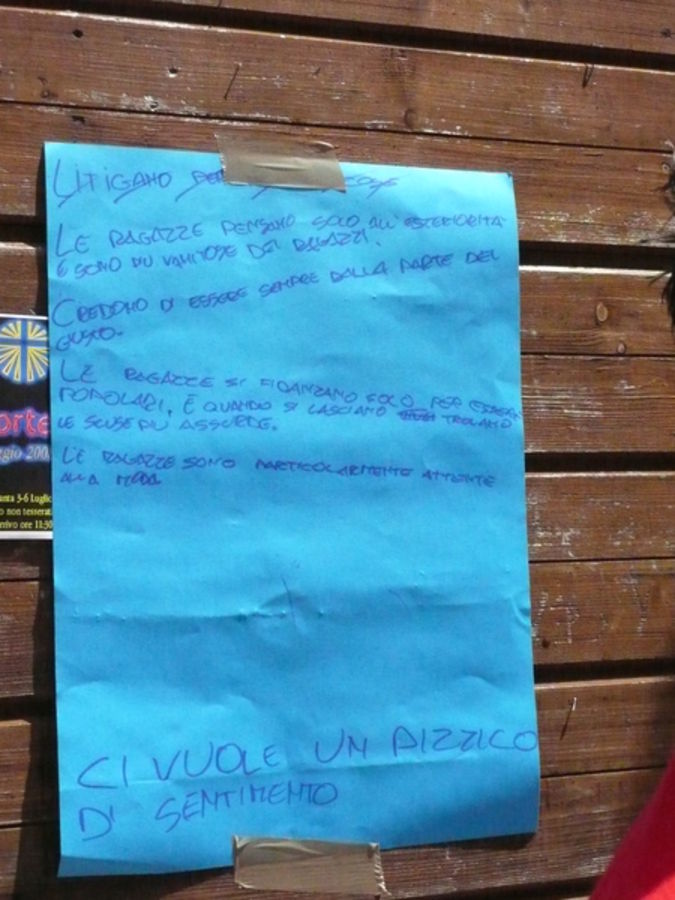 LITIGANO PER COSE
LE RAGAZZE PENSANO SOLO ALL'ESTERIORITA'
E SONO PIU VANITOSE DEI RAGAZZI.
CREDONO DI ESSERE SEMPRE DALLA PARTE DEL
GIUSTO.
LE RAGAZZE SI FIDANZANO SOLO PER ESSERE
POPOLARI, E QUANDO SI LASCIANO TROVANO
LE SCUSE PIU ASSURDE.
LE RAGAZZE SONO PARTICOLARMENTE ATTENTE
ALLA MODA
CI VUOLE UN PIZZICO
DI SENTIMENTO
orte
ggio 200
anta 3-6 Luglio
o non tesserat
arrivo ore 11:30